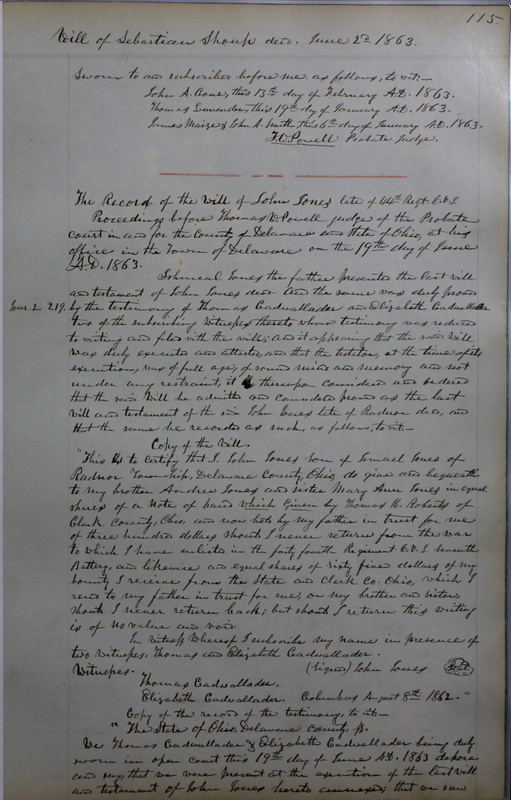 115.
Will of Sebastian Shoup decd. June 2d 1863.
Sworn to and subscribed before me as follows, to wit:—
John A. this 13th day of February A.D. 1863.
Thomas this 19th day of January A.D. 1863.
James Maize & John A. Smith this 6th day of January A.D. 1863.
T.W. Powell Probate Judge.
The Record of the Will of John Jones late of 44th Regt O.V.I.
Proceedings before Thomas W. Powell judge of the Probate
court in and for the County of Delaware and State of Ohio, at his
office in the Town of Delaware on the 19th day of June
A.D. 1863.
Jones the father presented the last will
and testament of John Jones decd. And the same was duly proved
Jour. 2. 219. by the testimony of Thomas Cadwallader and Elizabeth Cadwallader
two of the subscribing Witnesses thereto whose testimony was reduced
to writing and filed with the will; and it appearing that the said Will
was duly executed and attested, and that the testator, at the time of its
execution, was of full age, of sound mind and memory and not
under any restraint, it thereupon considered and ordered
that the said Will be admitted and proved as the last
will and testament of the said John Jones late of Radnor decd, and
that the same be recorded as such, as follows, to wit:—
Copy of the Will.
"This is to certify that I, John Jones son of Ismael Jones of
Radnor Township, Delaware County, Ohio, do give and bequeath
to my brother Andrew Jones and sister Mary Ann Jones in equal
shares of a note of hand which given by Thomas H. Roberts of
Clark County, Ohio, and now held by my father in trust for me
of three hundred dollars should I never return from the war
to which I have enlisted in the forty fourth Regiment O.V.I. seventh
Battery, and likewise and equal shares of sixty five dollars of my
bounty I receive from the State and Clark Co. Ohio, which I
send to my father in trust for me, or my brother and sister,
should I never return back; but should I return this writing
is of no value and void.
In Witness Whereof I subscribe my name in presence of
two Witnesses, Thomas and Elizabeth Cadwallader.
Witnesses. (Signed) John Jones Seal
Thomas Cadwallader.
Elizabeth Cadwallader. Columbus August 8th 1862."
Copy of the record of the testimony, to wit:—
"The State of Ohio, Delaware County, ss.
We Thomas Cadwallader & Elizabeth Cadwallader being duly
sworn in open court this 19th day of June A.D. 1863 depose
and say, that we were present at the execution of the last will
and testament of John Jones hereto annexed; that we saw